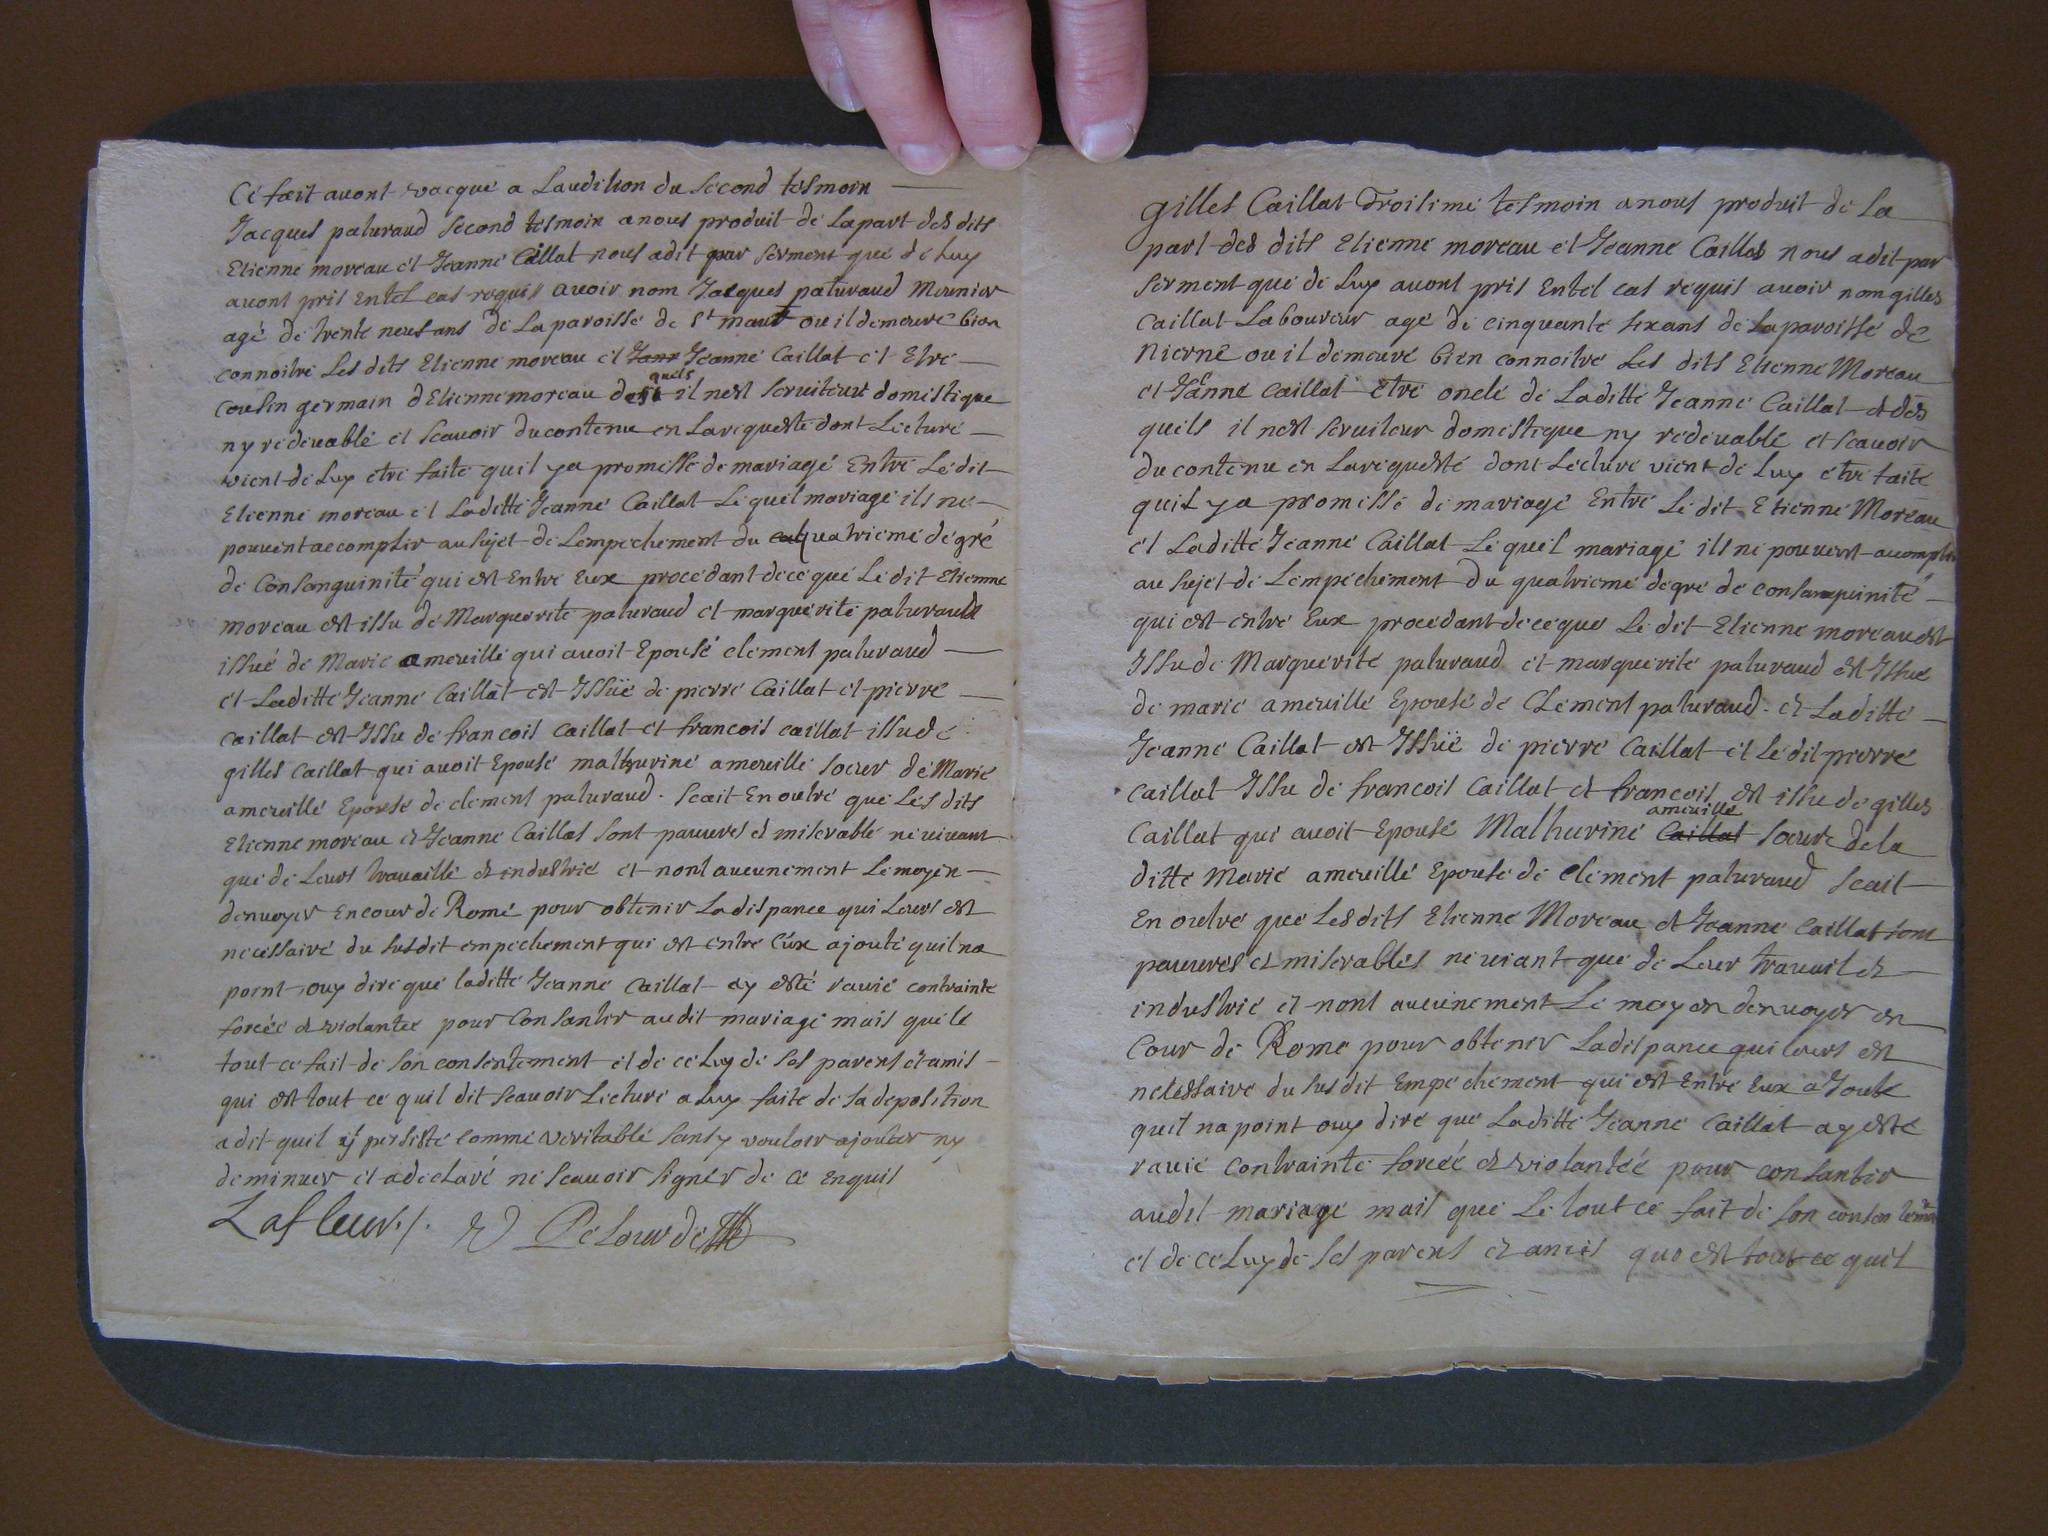 Ce fait avont vacqué a Laudition du second tesmoin
Jacques paturaud second tesmoin a nous produit de la part des dits
Etienne moreau et Jeanne Caillat nous a dit par serment que de Luy
avont pris En tel cas requis avoir nom Jacques paturaud Meunier
agé de trente neuf ans de La paroisse de St maur ou il demeure bien
connoitre Les dits Etienne moreau et Jeanne Caillat et Etre
cousin germain d Etienne moreau des quels il nest serviteur domestique
ny redevable et scavoir du contenu en La requeste dont Lecture
vient de Luy etre faite quil y a promesse de mariage Entre Le dit
Etienne moreau et Laditte Jeanne Caillat Le quel mariage ils ne
peuvent accomplir au sujet de Lempechement du quatrieme degré
de Consanguinité qui est Entre Eux procedant de ce que Le dit Etienne
moreau est issu de Marguerite paturaud et marguerite paturaud
issué de Marie ameuille qui avoit Epousé clement paturaud
et Laditte Jeanne Caillat est Issüe de pierre Caillat et pierre
caillat est Issu de francois caillat et francois caillat issu de
gilles caillat qui avoit Epousé mathurine ameuille soeur de Marie
ameuille Epouse de clement paturaud. scait En outre que Les dits
Etienne moreau et Jeanne Caillat sont pauvres et miserable ne vivant
que de Leurs travaille et industrie et nont aucunement Le moyen
denvoyer En cour de Rome pour obtenir La dispance qui Leurs est
necessaire du susdit empechement qui est entre Eux ajoute quil na
point ouy dire que laditte Jeanne Caillat ay esté ravie contrainte
forcée et violantée pour Consantir audit mariage mais que le
tout ce fait de son consentement et de celuy de ses parens et amis
qui est tout ce quil dit scavoir Lecture a Luy faite de sa deposition
a dit quil y persiste comme veritable sans y vouloir ajouter ny
deminuer et a declaré ne scavoir signer de ce enquis
Lafleur
gilles Caillat Troisime tesmoin a nous produit de La
part des dits Etienne moreau et Jeanne Caillat nous a dit par
serment que de Luy avont pris En tel cas requis avoir nom gilles
Caillat Laboureur agé de cinquante six ans de La paroisse de
Nierne ou il demeure bien connoitre Les dits Etienne Moreau
et Jeanne Caillat etre oncle de Laditte Jeanne Caillat et des
quels il nest serviteur domestique ny redevable et scavoir
du contenu en La requeste dont Lecture vient de Luy etre faite
quil y a promesse de mariage Entre Le dit Etienne Moreau
et Laditte Jeanne Caillat Le quel mariage ils ne peuvent accomplir
au sujet de Lempechement du quatrieme degre de consanguinité
qui est entre Eux procedant de ce que Le dit Etienne moreau est
Issu de Marguerite paturaud et marguerite paturaud est Issue
de marie ameuille Epouse de Clement paturaud. et Laditte
Jeanne Caillat est Issüe de pierre Caillat et Le dit pierre
Caillat Issu de francois Caillat et francois est issu de gilles
Caillat qui avoit Epousé Mathurine ameuille soeure de la
ditte Marie ameuille Epouse de clement paturaud scait
En outre que Les dits Etienne Moreau et Jeanne Caillat sont
pauvres et miserables ne viant que de Leur travail et
industrie et nont aucunement Le moyen denvoyer en
Cour de Rome pour obtener La dispance qui leurs est
necessaire du susdit Empechement qui est Entre Eux a Joute
quil na point ouy dire que Laditte Jeanne Caillat ay esté
ravie contrainte forcée et violantée pour consantir
audit mariage mais que Le tout ce fait de son consentement
et de celuy de ses parens et amis que est tout ce quil